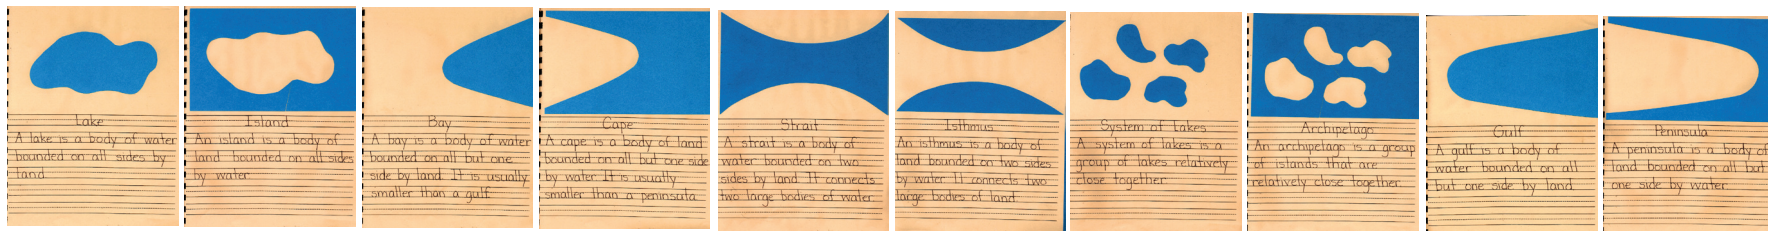 Lake
A lake is a body of water
bounded on all sides by
land.
Island
An island is a body of
land bounded on all sides
by water
Bay
A bay is a body of water
bounded on all but one
side by land. It is usually
smaller than a gulf.
Cape
A cape is a body of land
bounded on all but one side
by water. It is usually
smaller than a peninsula.
Strait
A strait is a body of
water bounded on two
sides by land. It connects
two large bodies of water.
Isthmus
An isthmus is a body of
land bounded on two sides
by water. It connects two
large bodies of land.
System of Lakes
A system of lakes is a
group of lakes relatively
close together.
Archipelago
An archipelago is a group
of islands that are
relatively close together.
Gulf
A gulf is a body of
water bounded on all
but one side by land.
Peninsula
A peninsula is a body of
land bounded on all but
one side by water.